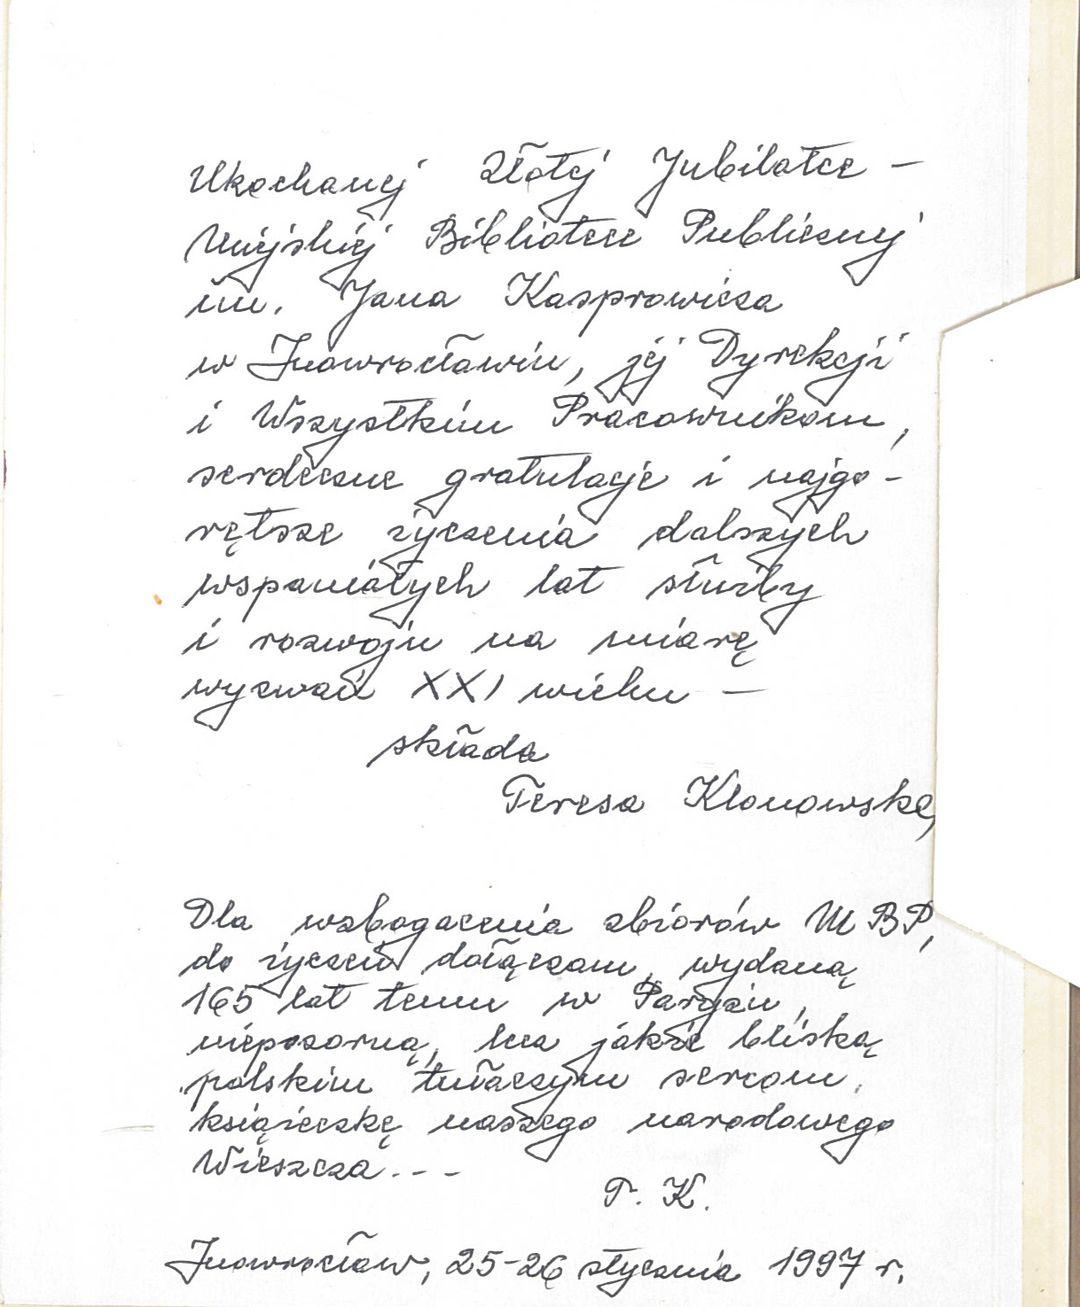 Ukochanej Złotej Jubilatce –
Miejskiej Bibliotece Publicznej
im. Jana Kasprowicza
w Inowrocławiu, jej Dyrekcji
i Wszystkim Pracownikom,
serdeczne gratulacje i najgo-
rętsze życzenia dalszych
wspaniałych lat służby
i rozwoju na miarę
wyzwań XXI wieku –
składa
Teresa Klonowska
Dla wzbogacenia zbiorów MBP,
do życzeń dołączam, wydaną
165 lat temu w Paryżu,
niepozorną, lecz jakże bliską
polskim tułaczym sercom,
książeczkę naszego narodowego
Wieszcza...
T. K.
Inowrocław, 25-26 stycznia 1997 r.